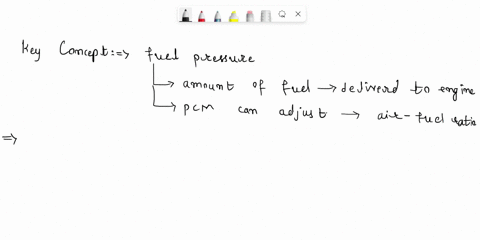 Key Concept:=> fuel pressure
→ amount of fuel → deliverd to engine
→ PCM can adjust → air-fuel ratio
=>